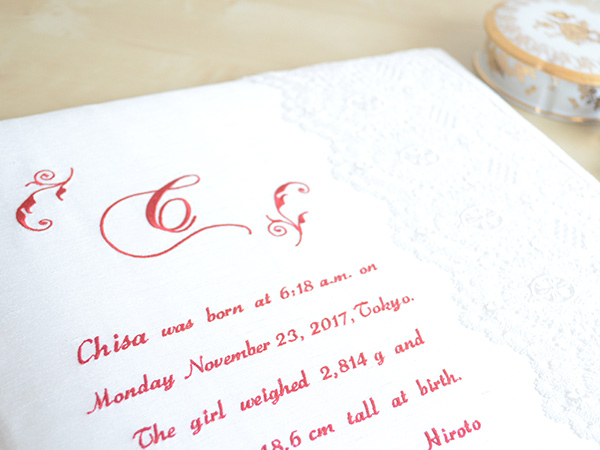 C
Chisa was born at 6:18 a.m. on
Monday November 23, 2017, Tokyo.
The girl weighed 2,814 g and
8.6 cm tall at birth.
Niroto